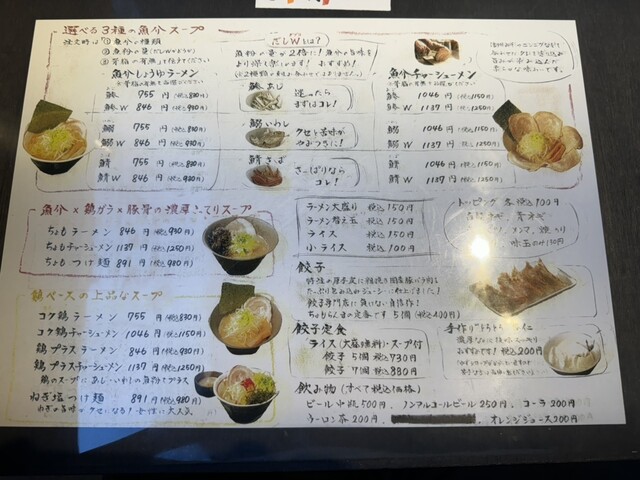 選べる3種の魚介スープ
注文時は
① 魚介の種類
② 魚粉の量(だしWかどうか)
③ 背脂の有無 をお伝えください
魚介しょうゆラーメン
鯵 755円(税込830円)
鯵W 846円(税込930円)
鰯 755円(税込830円)
鰯W 846円(税込930円)
鯖 755円(税込830円)
鯖W 846円(税込930円)
だしWとは?
魚粉の量が2倍に!魚介の旨味を
より深く楽しめます! おすすめ!
鯵 あじ
迷ったら
まずはコレ!
鰯 いわし
クセと苦味が
やみつきに!
鯖 さば
さっぱりなら
コレ!
魚介チャーシューメン
鯵 1046円(税込1150円)
鯵W 1137円(税込1250円)
鰯 1046円(税込1150円)
鰯W 1137円(税込1250円)
鯖 1046円(税込1150円)
鯖W 1137円(税込1250円)
魚介×鶏ガラ×豚骨の濃厚こってりスープ
ちょもラーメン 846円(税込930円)
ちょもチャーシューメン 1137円(税込1250円)
ちょもつけ麺 891円(税込980円)
鶏ベースの上品なスープ
コク鶏ラーメン 755円(税込830円)
コク鶏チャーシューメン 1046円(税込1150円)
鶏プラスラーメン 846円(税込930円)
鶏プラスチャーシューメン 1137円(税込1250円)
鶏のスープにあじ・いわしの魚粉をプラス
ねぎ塩つけ麺 891円(税込980円)
ねぎの旨味がクセになる!女性に大人気
ラーメン大盛り 税込150円
ラーメン替え玉 税込150円
ライス 税込150円
小ライス 税込100円
トッピング 各税込100円
味玉のみ130円
餃子
餃子専門店に負けない自信作!
餃子定食
ライス(大盛無料)・スープ付
餃子 5個 税込730円
餃子 7個 税込880円
おすすめです! 税込200円
飲み物(すべて税込価格)
ビール中瓶 500円、ノンアルコールビール 250円、コーラ 200円
ウーロン茶 200円、オレンジジュース 200円